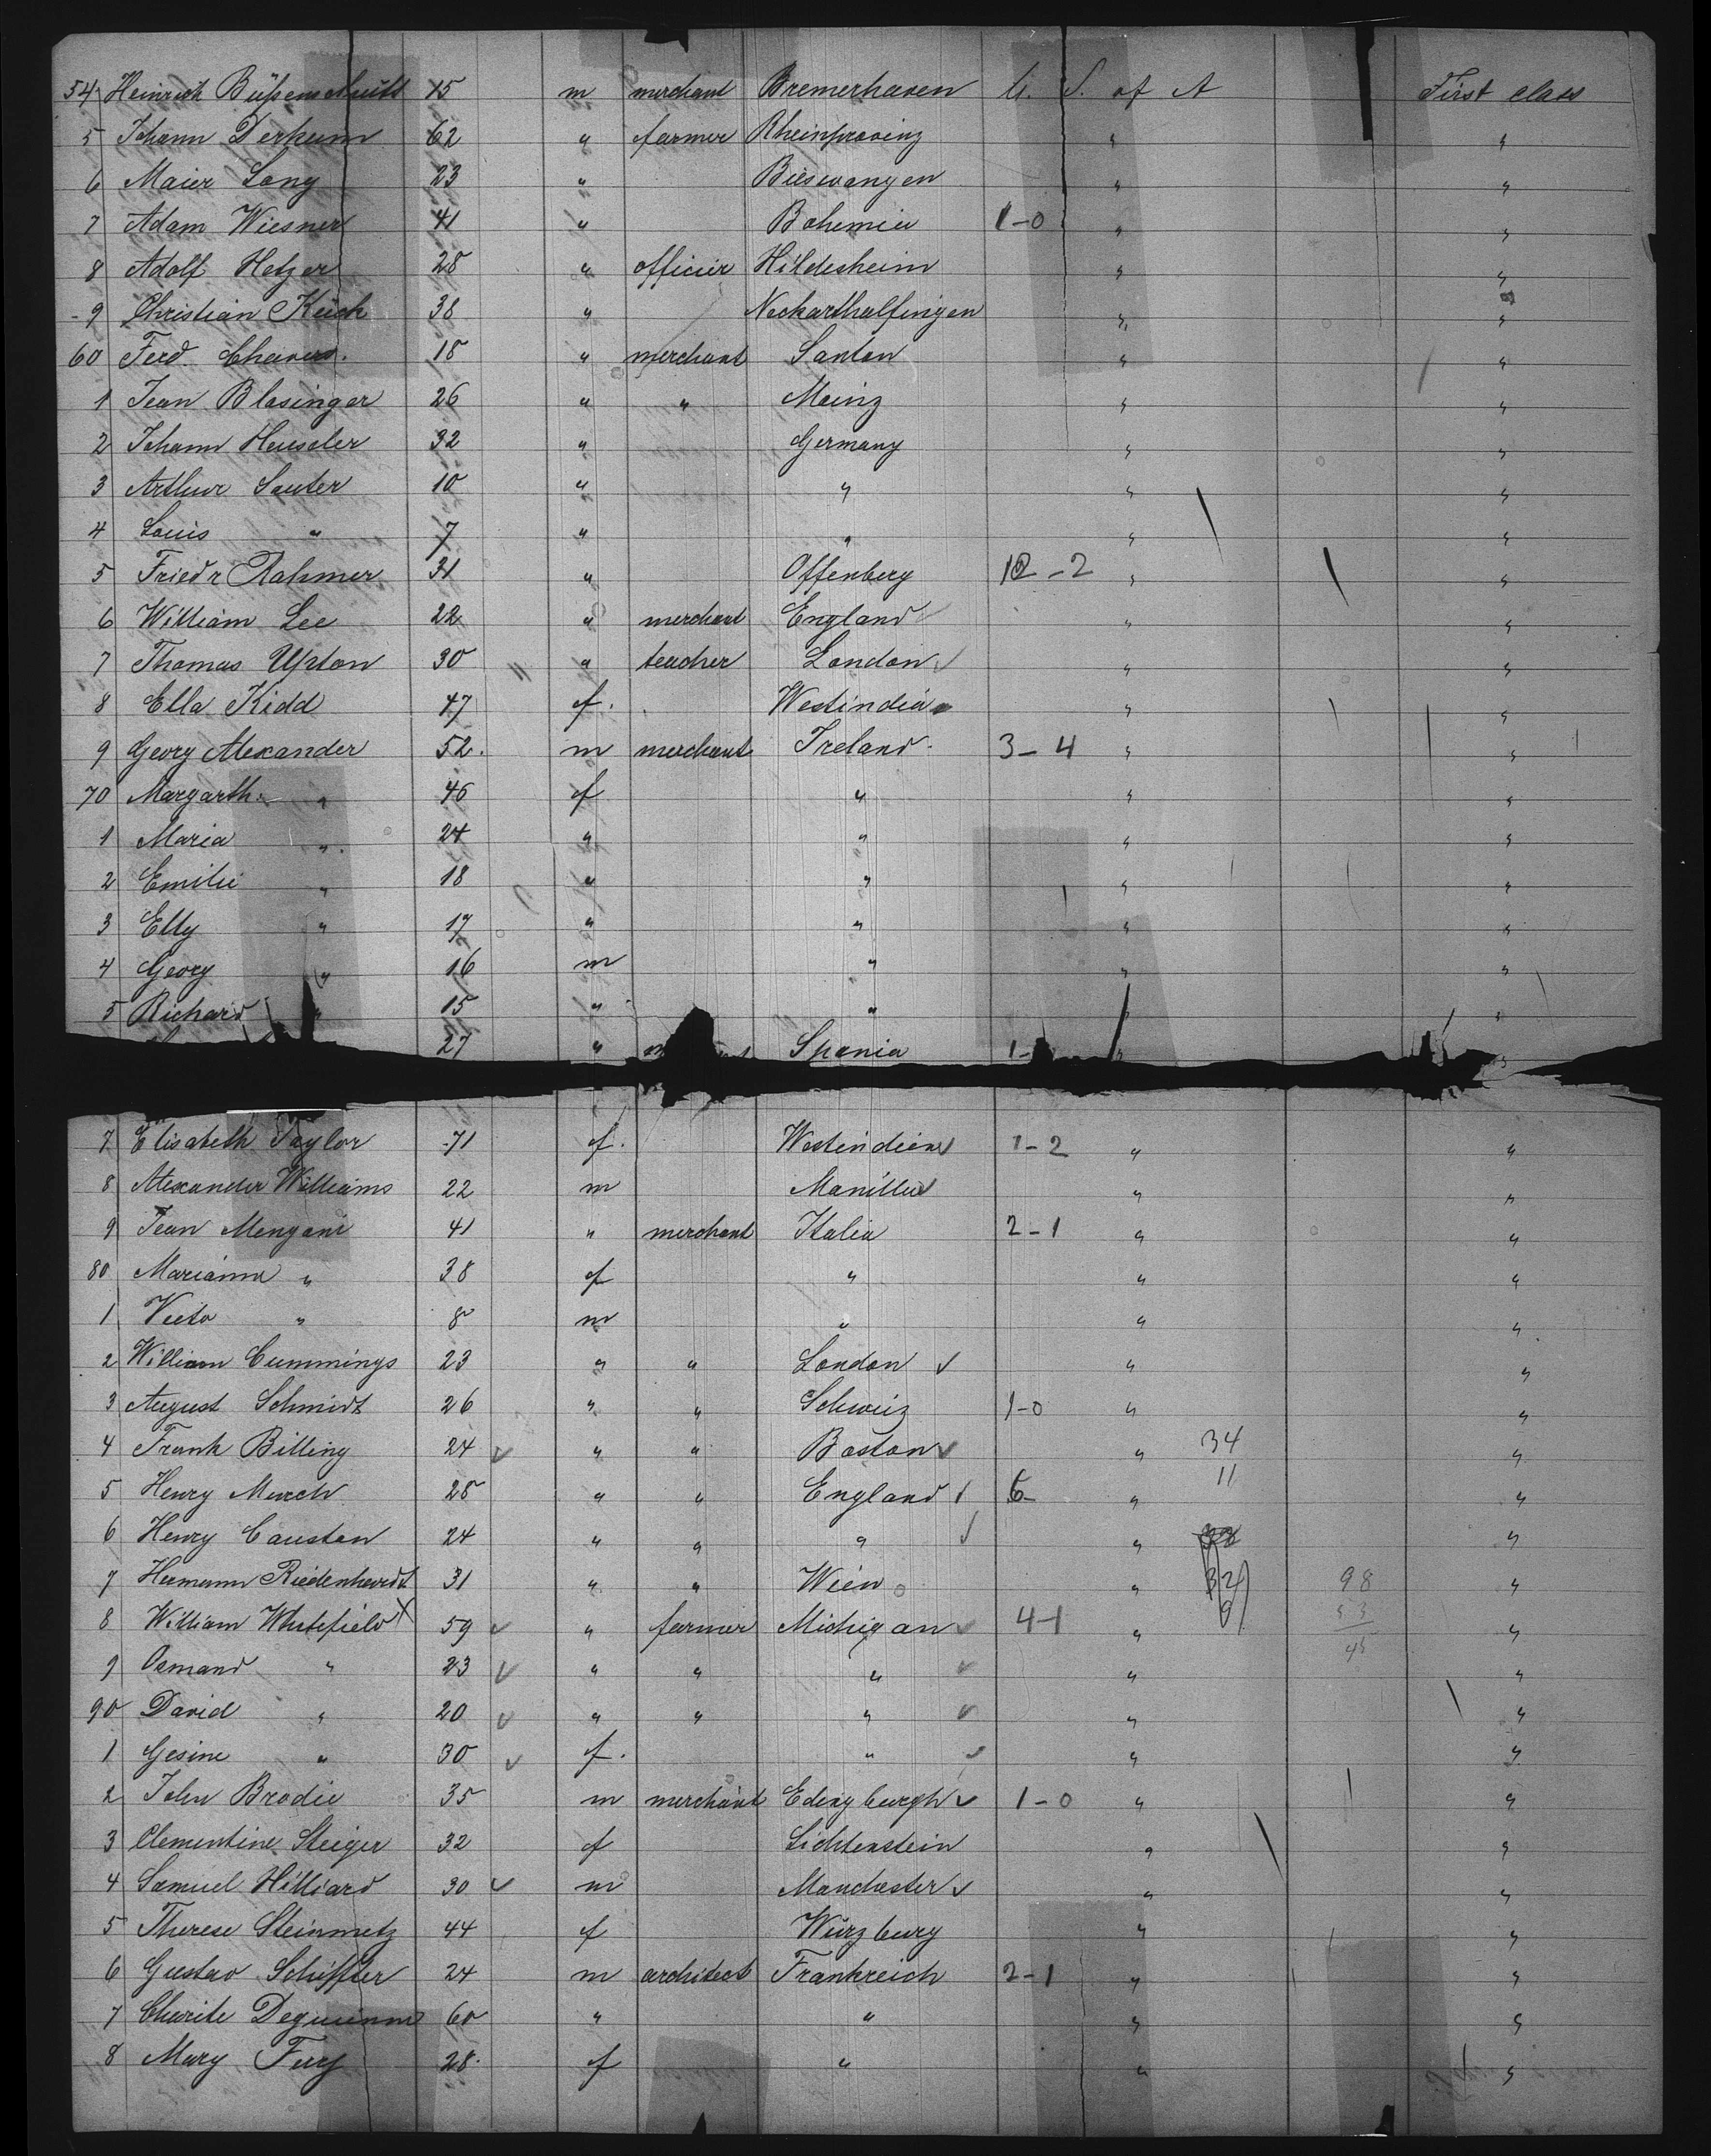 54 Heinrich Büssenschütt 15 m merchant Bremerhaven U. S. of A First class
5 Johann Derkum 62 " farmer Rheinprovinz " "
6 Maier Lang 23 " Bieswangen " "
7 Adam Wiesner 41 " Bohemia 1-0 " "
8 Adolf Hetzer 28 " officier Hildesheim " "
9 Christian Kück 38 " Neckarthalfingen " "
60 Ferd. 18 " merchant Santon " "
1 Jean Blasinger 26 " " Mainz " "
2 Johann Heuseler 32 " Germany " "
3 Arthur Sauter 10 " " " "
4 Louis " 7 " " " "
5 Friedr Rahmer 31 " Offenberg 2 " "
6 William Lee 22 " merchant England " "
7 Thomas Upton 30 " teacher London " "
8 Ella Kidd 47 f. Westindia " "
9 Georg Alexander 52. m merchant Ireland 3-4 " "
70 Margarth. " 46 f " " "
1 Maria " 24 " " " "
2 Emilie " 18 " " " "
3 Elly " 17 " " " "
4 Georg " 16 m " " "
5 Richard " 15 " " " "
27 " Spania 1- " "
7 Elisabeth Taylor 71 f. Westindien 1-2 " "
8 Alexander Williams 22 m Manilla " "
9 Jean Mengani 41 " merchant Italia 2-1 " "
80 Marianna " 38 f " " "
1 Vieto " 8 m " " "
2 William Cummings 23 " " London ✓ " "
3 August Schmidt 26 " " Schweiz 1-0 " "
4 Frank Billing 24 ✓ " " Boston ✓ " 34 "
5 Henry March 28 " " England ✓ 6- " 11 "
6 Henry Causton 24 " " " ✓ " "
7 Hermann Riedenhardt 31 " " Wien " 32 98 "
8 William Whitefield X 59 ✓ " farmer Michigan ✓ 4-1 " 9 53 "
45
9 Osmand " 23 ✓ " " " ✓ " "
90 David " 20 ✓ " " " ✓ " "
1 Gesine " 30 ✓ f. " ✓ " "
2 John Brodie 35 m merchant Edingburgh ✓ 1-0 " "
3 Clementine Steiger 32 f Lichtenstein " "
4 Samuel Hilliard 30 ✓ m Manchester ✓ " "
5 Therese Steinmetz 44 f Würzburg " "
6 Gustav Schiffler 24 m architect Frankreich 2-1 " "
7 Charite 60 " " " "
8 Mary Fury 28. f " " "